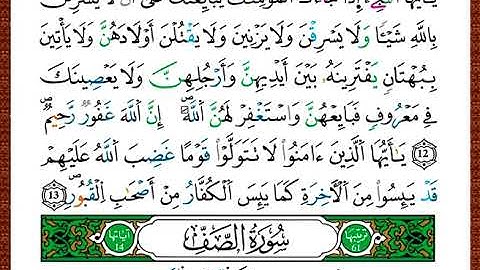 يَٰٓأَيُّهَا ٱلنَّبِيُّ إِذَا جَآءَكَ ٱلْمُؤْمِنَٰتُ يُبَايِعْنَكَ عَلَىٰٓ أَن لَّا يُشْرِكْنَ
بِٱللَّهِ شَيْـًٔا وَلَا يَسْرِقْنَ وَلَا يَزْنِينَ وَلَا يَقْتُلْنَ أَوْلَٰدَهُنَّ وَلَا يَأْتِينَ
بِبُهْتَٰنٍ يَفْتَرِينَهُۥ بَيْنَ أَيْدِيهِنَّ وَأَرْجُلِهِنَّ وَلَا يَعْصِينَكَ
فِى مَعْرُوفٍ فَبَايِعْهُنَّ وَٱسْتَغْفِرْ لَهُنَّ ٱللَّهَ إِنَّ ٱللَّهَ غَفُورٌ رَّحِيمٌ
12 يَٰٓأَيُّهَا ٱلَّذِينَ ءَامَنُوا۟ لَا تَتَوَلَّوْا۟ قَوْمًا غَضِبَ ٱللَّهُ عَلَيْهِمْ
قَدْ يَئِسُوا۟ مِنَ ٱلْءَاخِرَةِ كَمَا يَئِسَ ٱلْكُفَّارُ مِنْ أَصْحَٰبِ ٱلْقُبُورِ 13
ترتيبها 61 سُورَةُ الصَّفِّ آياتها 14